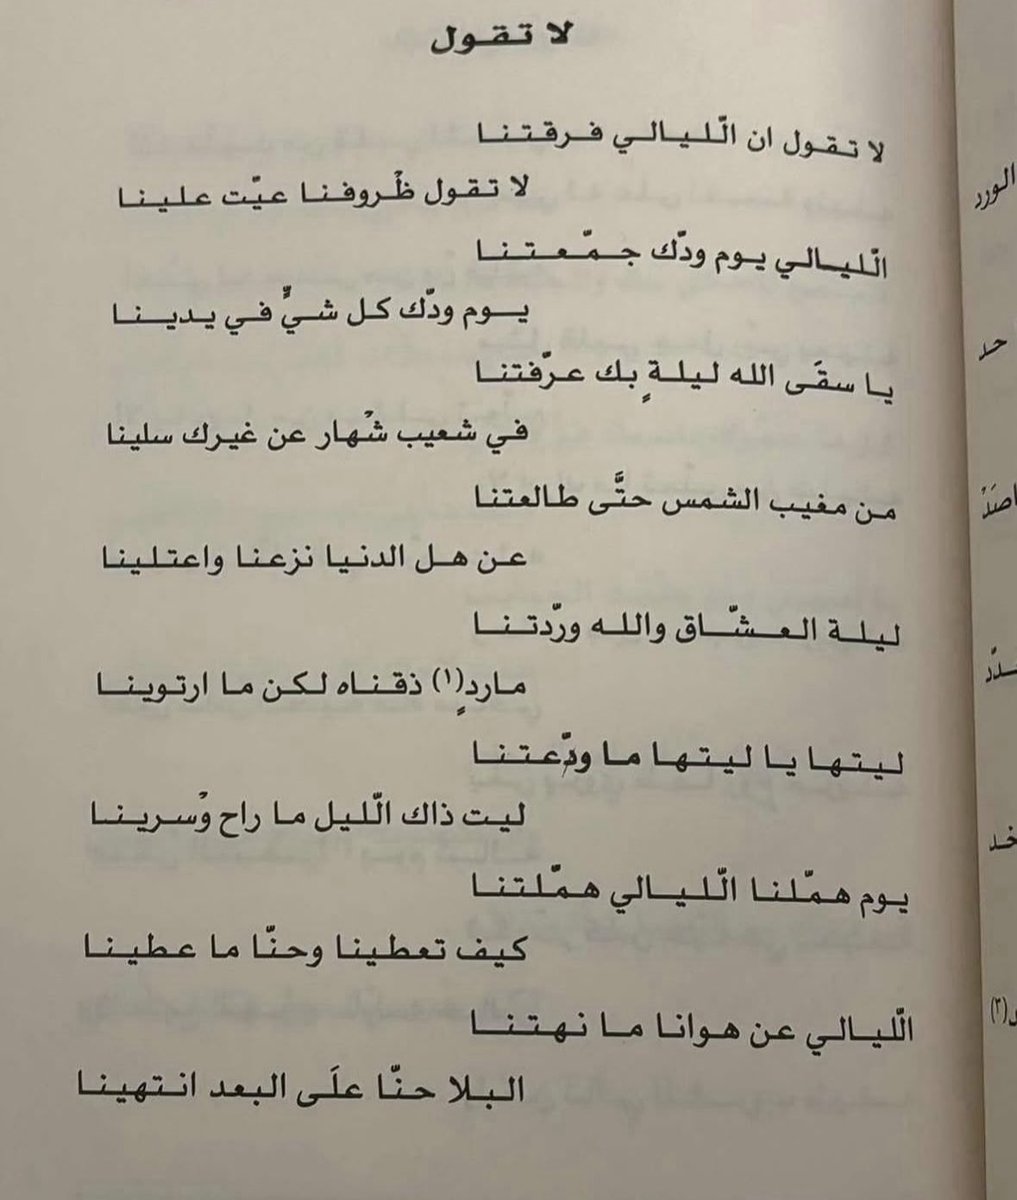 لا تقول
لا تقول ان الّليالي فرقتنا
لا تقول ظْروفنا عيّت علينا
الّليالي يوم ودّك جمّعتنا
يوم ودّك كل شيٍّ في يدينا
يا سقَى الله ليلةٍ بك عرّفتنا
في شعيب شْهار عن غيرك سلينا
من مغيب الشمس حتَّى طالعتنا
عن هل الدنيا نزعنا واعتلينا
ليلة العشّاق والله ورّدتنا
ماردٍ(١) ذقناه لكن ما ارتوينا
ليتها يا ليتها ما ودّعتنا
ليت ذاك الّليل ما راح وْسرينا
يوم همّلنا الّليالي همّلتنا
كيف تعطينا وحنّا ما عطينا
الّليالي عن هوانا ما نهتنا
البلا حنّا علَى البعد انتهينا
الورد
حد
خد